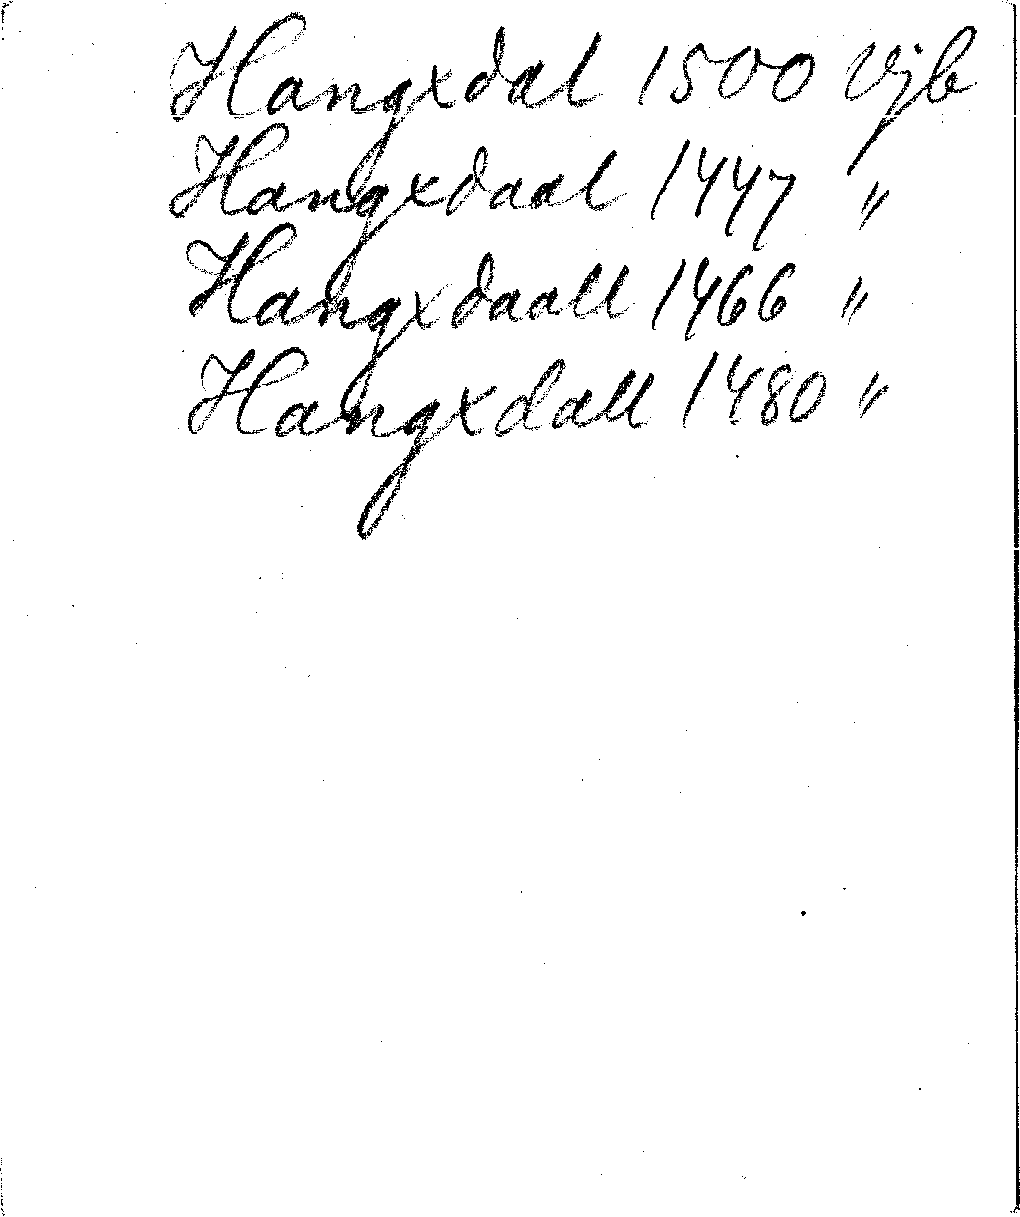 Hangxdal 1500 Vjb
Hangxdaal 1447 "
Hangxdaall 1466 "
Hangxdall 1480 "